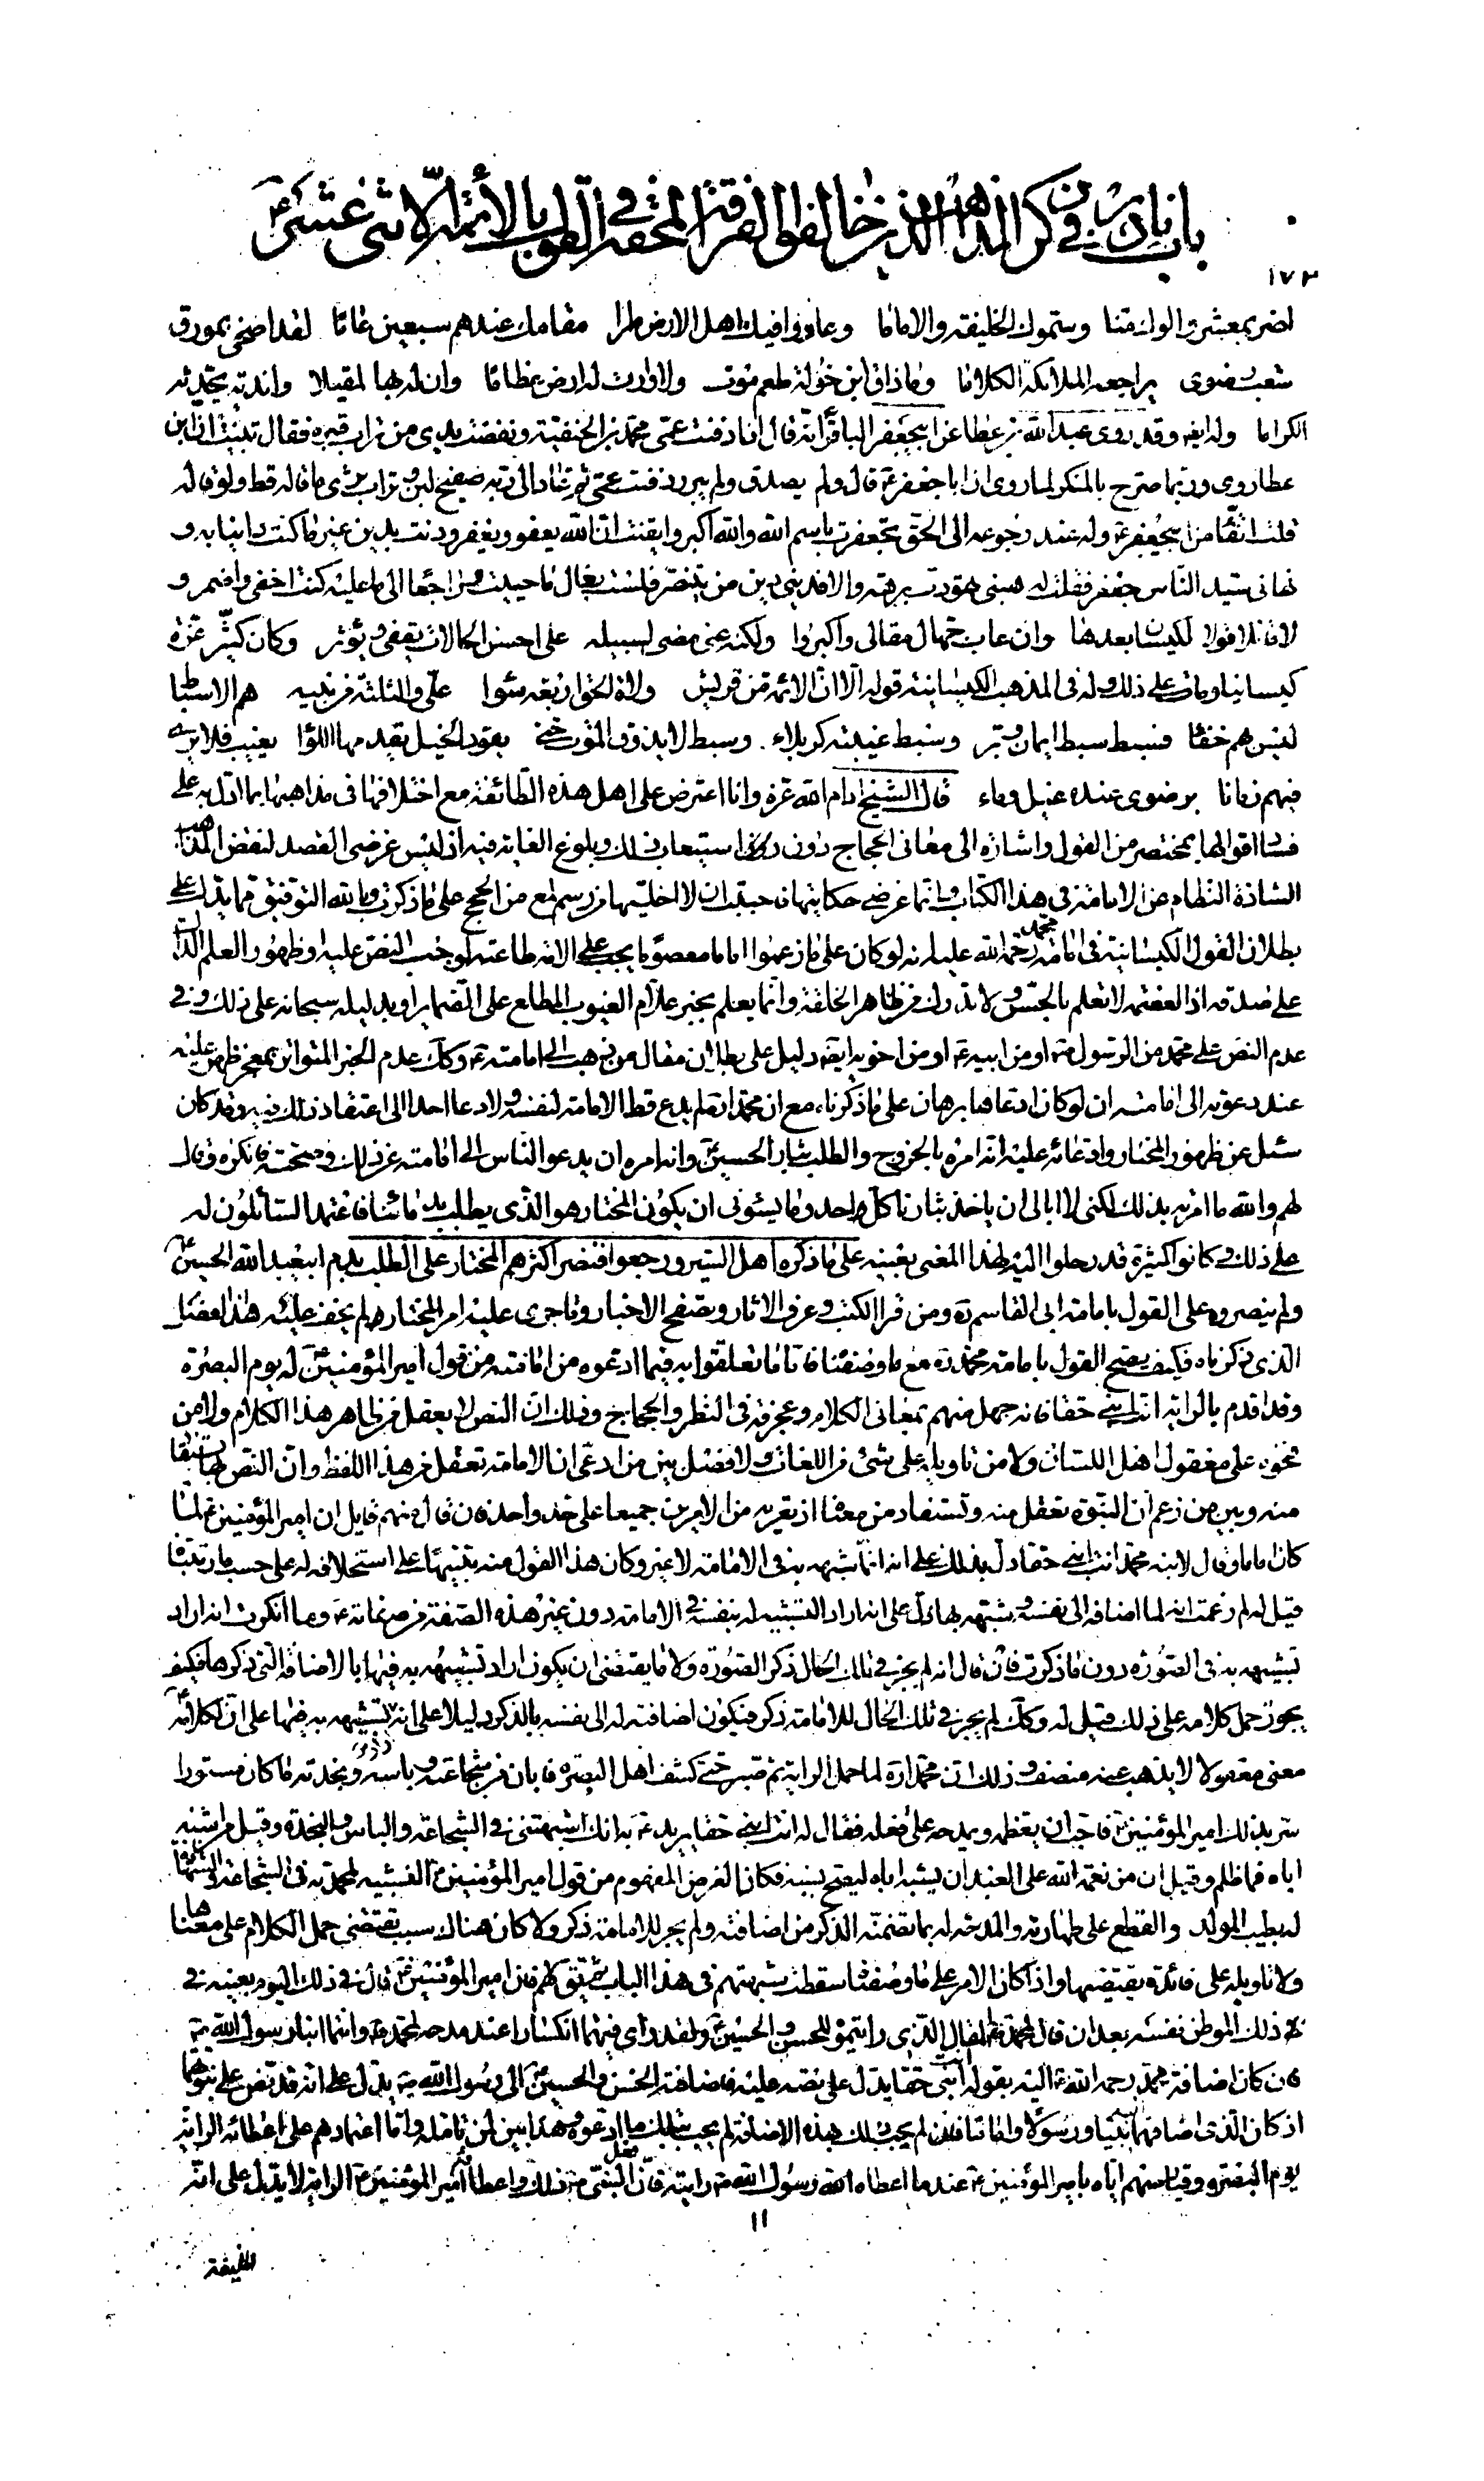 باب نادر في ذكر المذاهب الذين خالفوا الفرقة المحقة في القول بالأئمة الاثنى عشر
١٧٢
اضر بمعشر والوك منا وسموك الخليفة والاماما وعادوا فيك اهل الارض طرا مقامك عندهم سبعين عاما لقد اضحى بمورق
شعب رضوى يراجعه الملائكة الكلاما وما ذاق ابن خولة طعم موت ولا وارت له ارض عظاما وان له بها لمقيلا واندية يحدثه
الكراما وله ايضا وقد روى عبد الله بن عطا عن ابيجعفر الباقر انه قال انا دفنت عمى محمد بن الحنفية ونفضت يدى من تراب قبره فقال نبئت ان ابن
عطا روى وربما صرح بالمنكر لما روى ان ابا جعفر قال ولم يصدق ولم يبرر دفنت عمى ثم غادرته صفيح لبن وتراب ثرى ما قاله قط ولو قاله
قلت اتقا من ابيجعفر وله عند رجوعه الى الحق تجعفرت باسم الله والله اكبر وايقنت ان الله يعفو ويغفر ودنت بدين غير ما كنت دائنا به و
نهانى سيد الناس جعفر فقلت له هبنى تهودت برهة والا فدينى دين من يتنصر فلست بغال ما حييت وراجعا الى ما عليه كنت اخفى واضمر و
لا قائلا قولا لكيسان بعدها وان عاب جهال مقالى واكبروا ولكنه عنى مضى لسبيله على احسن الحالات يقفى ويؤثر وكان كثير عزة
كيسانيا ومات على ذلك وله فى المذهب الكيسانية قوله الا ان الائمة من قريش ولاة الحق اربعة سوا على والثلثة من بنيه هم الاسباط
ليس هم خفا فسبط سبط ايمان وبر وسبط غيبته كربلاء وسبط لا يذوق الموت حتى يقود الخيل يقدمها اللوا يغيب فلا يرى
فيهم زمانا برضوى عنده عسل وماء قال الشيخ ادام الله عزه وانا اعترض على اهل هذه الطائفة مع اختلافها فى مذاهبها بما ادل به على
فساد اقوالها بمختصر من القول واشارة الى معانى الحجاج دون استيعاب ذلك وبلوغ الغاية فيه اذ ليس غرضى القصد لنقض المذاهب
الشاذة النظام عن الامامة فى هذا الكتاب وانما غرضى حكايتها فاحببت ان لا اخليها من رسم لمع من الحجج على ما ذكرت وبالله التوفيق فمما يدل على
بطلان القول الكيسانية فى امامة محمد رحمة الله عليه انه لو كان على ما زعموا اماما معصوما يجب على الامة طاعته لوجب النص عليه او ظهور العلم الدال
على صدقه اذ العصمة لا تعلم بالحس ولا تدرك من ظاهر الخلقة وانما يعلم بخبر علام الغيوب المطلع على الضماير او بدليله سبحانه على ذلك وفى
عدم النص على محمد من الرسول او من ابيه او من اخويه ايضا دليل على بطلان مقال من ذهب الى امامته وكك عدم الخبر المتواتر بمعجز ظهر عليه
عند دعوته الى امامته ان لو كان ادعاها برهان على ما ذكرناه مع ان محمدا لم يدع قط الامامة لنفسه ولا دعا احدا الى اعتقاد ذلك فيه وقد كان
سئل عن ظهور المختار وادعائه عليه انه امره بالخروج والطلب بثار الحسين وانه امره ان يدعو الناس الى امامته عن ذلك وصحته فانكره وقال
لهم والله ما امرته بذلك لكنى لا ابالى ان ياخذ بثارنا كل واحد وما يسوئنى ان يكون المختار هو الذى يطلب بدمائنا فاعتمد السائلون له
على ذلك وكانوا كثيرة قد رحلوا اليه لهذا المعنى بعينه على ما ذكره اهل السير ورجعوا فنصر اكثرهم المختار على الطلب بدم ابيعبد الله الحسين
ولم ينصروه على القول بامامة ابى القاسم ومن قرا الكتب وعرف الاثار وتصفح الاخبار وما جرى عليه امر المختار لم يخف عليه هذا الفصل
الذى ذكرناه فكيف يصح القول بامامة محمد مع ما وصفناه فاما ما تعلقوا به فيما ادعوه من امامته من قول امير المؤمنين له يوم البصرة
وقد اقدم بالراية انت ابنى حقا فانه جهل منهم بمعانى الكلام وعجرفة فى النظر والحجاج وذلك ان النص لا يعقل من ظاهر هذا الكلام ولا من
فحواه على معقول اهل اللسان ولا من تاويله على شئ من اللغات ولا فصل بين من ادعى ان الامامة تعقل من هذا اللفظ وان النص بها يستفاد
منه وبين من زعم ان النبوة تعقل منه وتستفاد من معناه اذ تعريه من الامرين جميعا على حد واحد فان قال منهم قايل ان امير المؤمنين لما
كان اماما وقال لابنه محمد انت ابنى حقا دل بذلك على انه انما شبهه به فى الامامة لا غير وكان هذا القول منه تنبيها على استخلافه له على حسب ما رتبناه
قيل له لم زعمت انه لما اضافه الى نفسه وشبهه بها دل على انه اراد التشبيه له بنفسه فى الامامة دون غير هذه الصفة من صفاته وما انكرت انه اراد
تشبيهه به فى الصورة دون ما ذكرت فان قال انه لم يجر فى تلك الحال ذكر الصورة ولا ما يقتضى ان يكون اراد تشبيهه به فيها بالاضافة التى ذكرها فكيف
يجوز حمل كلامه على ذلك قيل له وكك لم يجر فى تلك الحال للامامة ذكر فيكون اضافته له الى نفسه بالذكر دليلا على انه اراد تشبيهه به فيها على ان لكلامه
معنى معقولا لا يذهب عنه منصف وذلك ان محمدا لما حمل الراية ثم صبر حتى كشف اهل البصرة فابان من شجاعته وباسه ونجدته ما كان مستورا
سر بذلك امير المؤمنين فاحب ان يعظمه ويمدحه على فعله فقال له انت ابنى حقا يريد به انك اشبهتنى فى الشجاعة والباس والنجدة وقيل من اشبه
اباه فما ظلم وقيل ان من نعمة الله على العبد ان يشبه اباه ليصح نسبه فكان الغرض المفهوم من قول امير المؤمنين التشبيه لمحمد به فى الشجاعة والشهادة
له بطيب المولد والقطع على طهارته والمدحة له بما تضمنه الذكر من اضافته ولم يجر للامامة ذكر ولا كان هناك سبب يقتضى حمل الكلام على معناها
ولا تاويله على فائدة يقتضيها واذا كان الامر على ما وصفناه سقطت شبهتهم فى هذا الباب ثم يق لهم فان امير المؤمنين قال فى ذلك اليوم بعينه فى
ذلك الموطن نفسه بعد ان قال لمحمد المقال الذى رايتموه للحسن والحسين ولقد راى فيهما انكسارا عند مدحه لمحمد وانتما ابنا رسول الله
فان كان اضافة محمد رحمه الله اليه بقوله ابنى حقا يدل على نصه عليه فاضافة الحسن والحسين الى رسول الله يدل على انه قد نص على نبوتهما
اذ كان الذى اضافهما اليه نبيا ورسولا واماما فان لم يجب ذلك بهذه الاضافة لم يجب بتلك ما ادعوه وهذا بين لمن تامله واما اعتمادهم على اعطائه الراية
يوم البصرة وقياسهم اياه بامير المؤمنين عندما اعطاه الله رسول الله رايته فان فعل النبى ذلك واعطائه امير المؤمنين الراية لا يدل على انه
١١
الخليفة